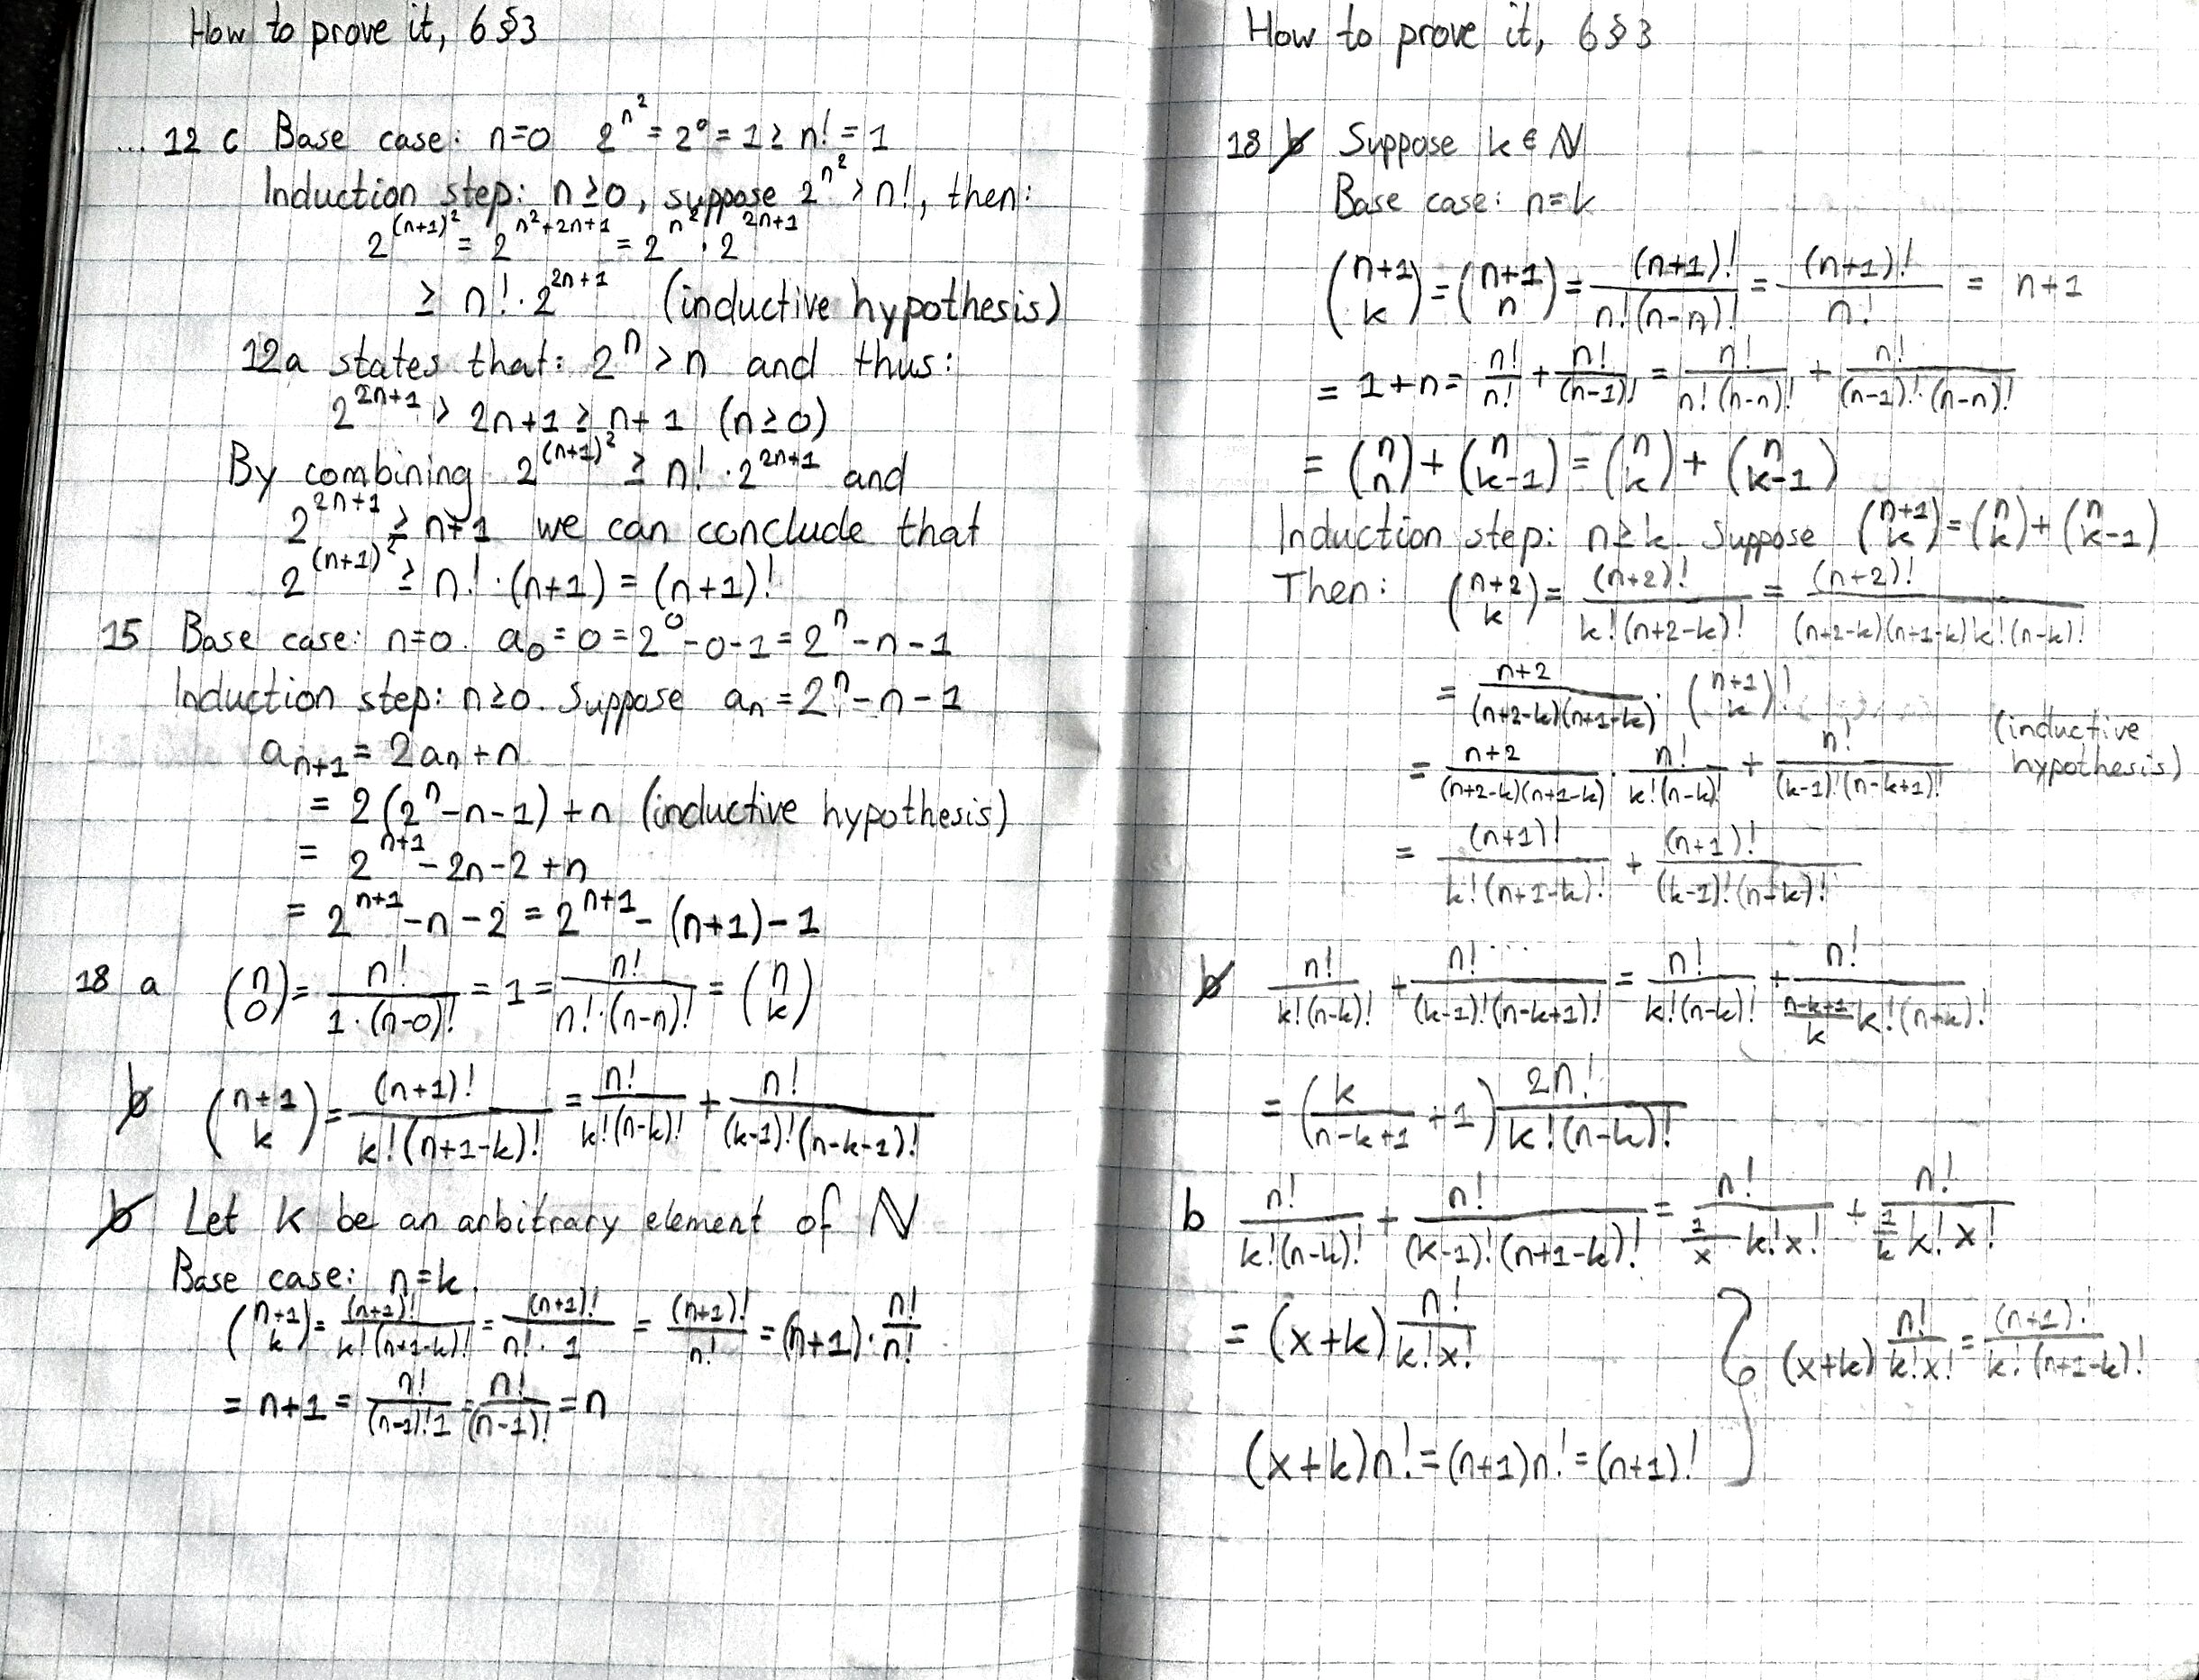 How to prove it, 6§3
... 12 c Base case: n=0 2^{n^2} = 2^0 = 1 ≥ n! = 1
Induction step: n ≥ 0, suppose 2^{n^2} > n!, then:
2^{(n+1)^2} = 2^{n^2+2n+1} = 2^{n^2} · 2^{2n+1}
≥ n! · 2^{2n+1} (inductive hypothesis)
12a states that: 2^n > n and thus:
2^{2n+1} > 2n+1 ≥ n+1 (n≥0)
By combining 2^{(n+1)^2} ≥ n! · 2^{2n+1} and
2^{2n+1} ≥ n+1 we can conclude that
2^{(n+1)^2} ≥ n! · (n+1) = (n+1)!
15 Base case: n=0. a_0 = 0 = 2^0 - 0 - 1 = 2^n - n - 1
Induction step: n≥0. Suppose a_n = 2^n - n - 1
a_{n+1} = 2a_n + n
= 2(2^n - n - 1) + n (inductive hypothesis)
= 2^{n+1} - 2n - 2 + n
= 2^{n+1} - n - 2 = 2^{n+1} - (n+1) - 1
18 a \binom{n}{0} = \frac{n!}{1·(n-0)!} = 1 = \frac{n!}{n!·(n-n)!} = \binom{n}{k}
b \binom{n+1}{k} = \frac{(n+1)!}{k!(n+1-k)!} = \frac{n!}{k!(n-k)!} + \frac{n!}{(k-1)!(n-k-1)!}
b Let k be an arbitrary element of ℕ
Base case: n=k.
\binom{n+1}{k} = \frac{(n+1)!}{k!(n+1-k)!} = \frac{(n+1)!}{n!·1} = \frac{(n+1)!}{n!} = (n+1)·\frac{n!}{n!}
= n+1 = \frac{n!}{(n-1)!1} = \frac{n!}{(n-1)!} = n
How to prove it, 6§3
18 b Suppose k ∈ ℕ
Base case: n=k
\binom{n+1}{k} = \binom{n+1}{n} = \frac{(n+1)!}{n!(n-n)!} = \frac{(n+1)!}{n!} = n+1
= 1+n = \frac{n!}{n!} + \frac{n!}{(n-1)!} = \frac{n!}{n!(n-n)!} + \frac{n!}{(n-1)!·(n-n)!}
= \binom{n}{n} + \binom{n}{k-1} = \binom{n}{k} + \binom{n}{k-1}
Induction step: n≥k. Suppose \binom{n+1}{k} = \binom{n}{k} + \binom{n}{k-1}
Then: \binom{n+2}{k} = \frac{(n+2)!}{k!(n+2-k)!} = \frac{(n+2)!}{(n+2-k)(n+1-k)k!(n-k)!}
= \frac{n+2}{(n+2-k)(n+1-k)} · \binom{n+1}{k}!
= \frac{n+2}{(n+2-k)(n+1-k)} · \frac{n!}{k!(n-k)!} + \frac{n!}{(k-1)!(n-k+1)!} (inductive hypothesis)
= \frac{(n+1)!}{k!(n+1-k)!} + \frac{(n+1)!}{(k-1)!(n-k)!}
b \frac{n!}{k!(n-k)!} + \frac{n!}{(k-1)!(n-k+1)!} = \frac{n!}{k!(n-k)!} + \frac{n!}{\frac{n-k+1}{k}k!(n-k)!}
= (\frac{k}{n-k+1} + 1)\frac{2n!}{k!(n-k)!}
b \frac{n!}{k!(n-k)!} + \frac{n!}{(k-1)!(n+1-k)!} = \frac{n!}{\frac{1}{x}k!x!} + \frac{n!}{\frac{1}{k}k!x!}
= (x+k)\frac{n!}{k!x!}
(x+k)\frac{n!}{k!x!} = \frac{(n+1)!}{k!(n+1-k)!}
(x+k)n! = (n+1)n! = (n+1)!